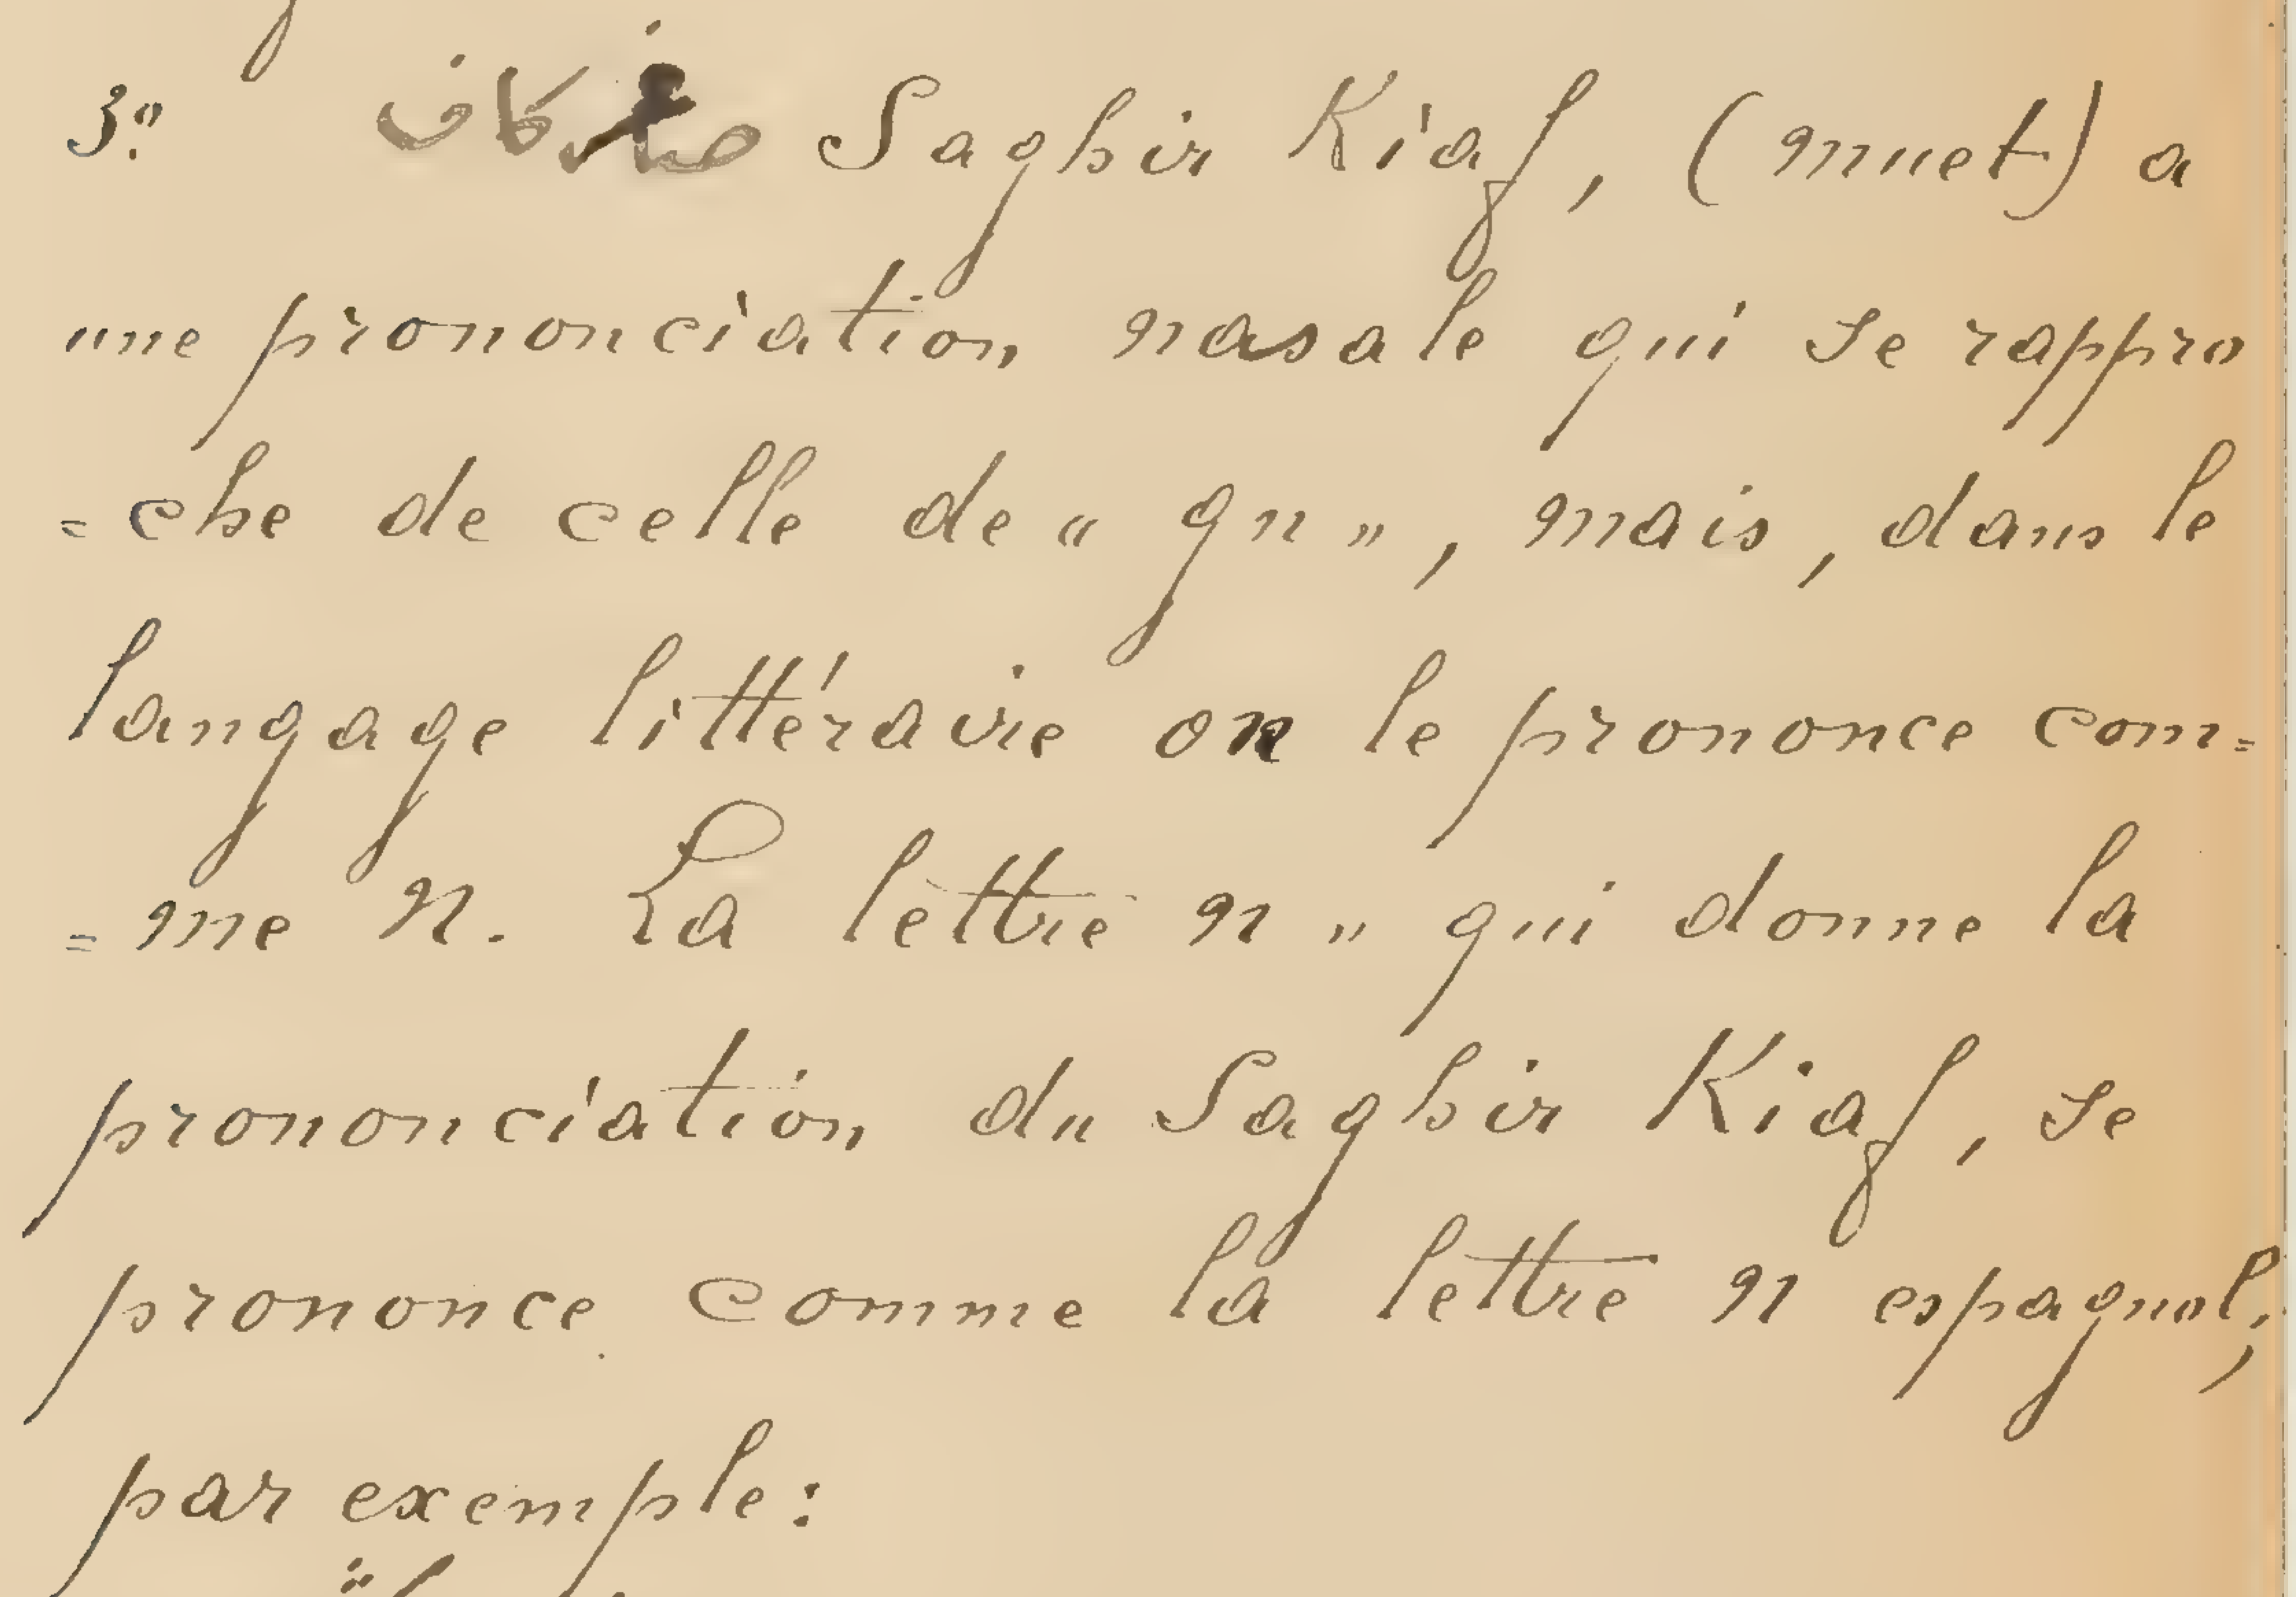 3º صغیر كاف Saghir Kiaf, (muet) a
une prononciation nasale qui se rappro
=che de celle de « gn », mais, dans le
langage littéraire on le prononce com=
=me n. La lettre n » qui donne la
prononciation du Saghir Kiaf, se
prononce comme la lettre n espagnol;
par exemple: